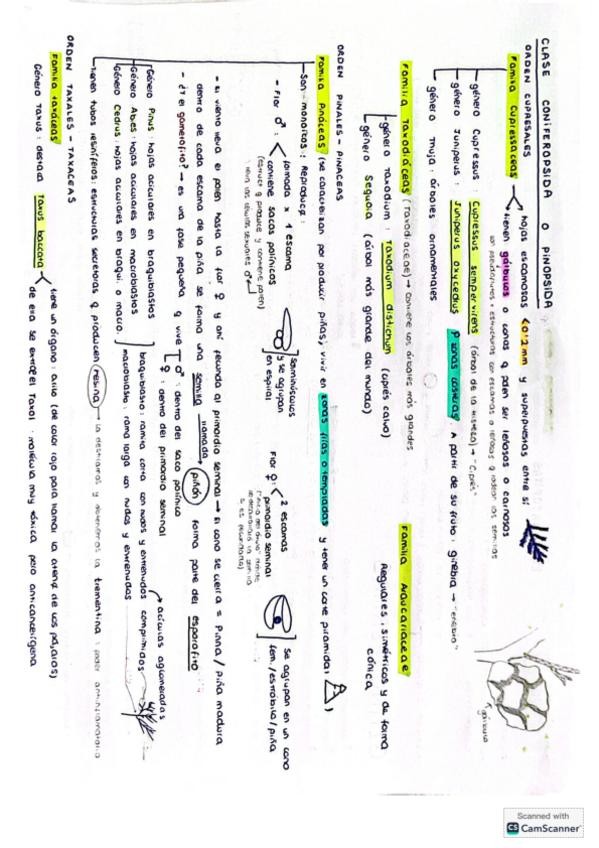 CLASE CONIFEROPSIDA O PINOPSIDA
ORDEN CUPRESALES
Familia Cupressáceas
hojas escamosas <0'2mm y superpuestas entre sí
tienen gálbulos o conos q pden ser leñosos o carnosos
género Cupressus: Cupressus sempervirens (árbol de la tristeza) → "Ciprés"
género Juniperus: Juniperus oxycedrus zonas costeras. A partir de su fruto: ginebra → "enebro"
género Thuja: árboles ornamentales
gálbulo
Familia Taxodiáceas (Taxodiaceae) → contiene los árboles más grandes
género Taxodium: Taxodium distichum (ciprés calvo)
género Sequoia (árbol más grande del mundo)
Familia Araucariaceae
Regulares, simétricos y de forma
cónica
ORDEN PINALES - PINACEAS
Familia Pináceas (se caracterizan por producir piñas, vivir en zonas frías o templadas y tener un porte piramidal)
Son monoicos: Reproducc:
- Flor ♂:
formada x 1 escama
contiene sacos polínicos
(estruct q produce y contiene polen)
lleva las células sexuales ♂
seminúsculos
y se agrupan
en espiral
Flor ♀:
2 escamas
primordio seminal
Se agrupan en un cono
fem./estróbilo/piña
- El viento lleva el polen hasta la flor ♀ y ahí fecunda al primordio seminal → el cono se cierra = Pinna/piña madura
dentro de cada escama de la piña se forma una semilla llamada piñón forma parte del esporofito
- ¿Y el gametofito? → es una fase pequeña q vive
♂: dentro del saco polínico
♀: dentro del primordio seminal
Género Pinus: hojas aciculares en braquiblastos
Género Abies: hojas aciculares en macroblastos
Género Cedrus: hojas aciculares en braqui o macro.
braquiblasto: ramita corta con nudos y entrenudos comprimidos
macroblasto: rama larga con nudos y entrenudos
acículas aglomeradas
tienen tubos resiníferos: estructuras secretoras q producen resina → la destilamos y obtenemos la trementina: poder antiinflamatorio
ORDEN TAXALES - TAXACEAS
Familia taxáceas
Género Taxus: destaca Taxus baccata
tiene un órgano: arilo (de color rojo para llamar la atenc de los pájaros)
de ella se extrae el Taxol: molécula muy tóxica pero anticancerígena
Scanned with
CS CamScanner